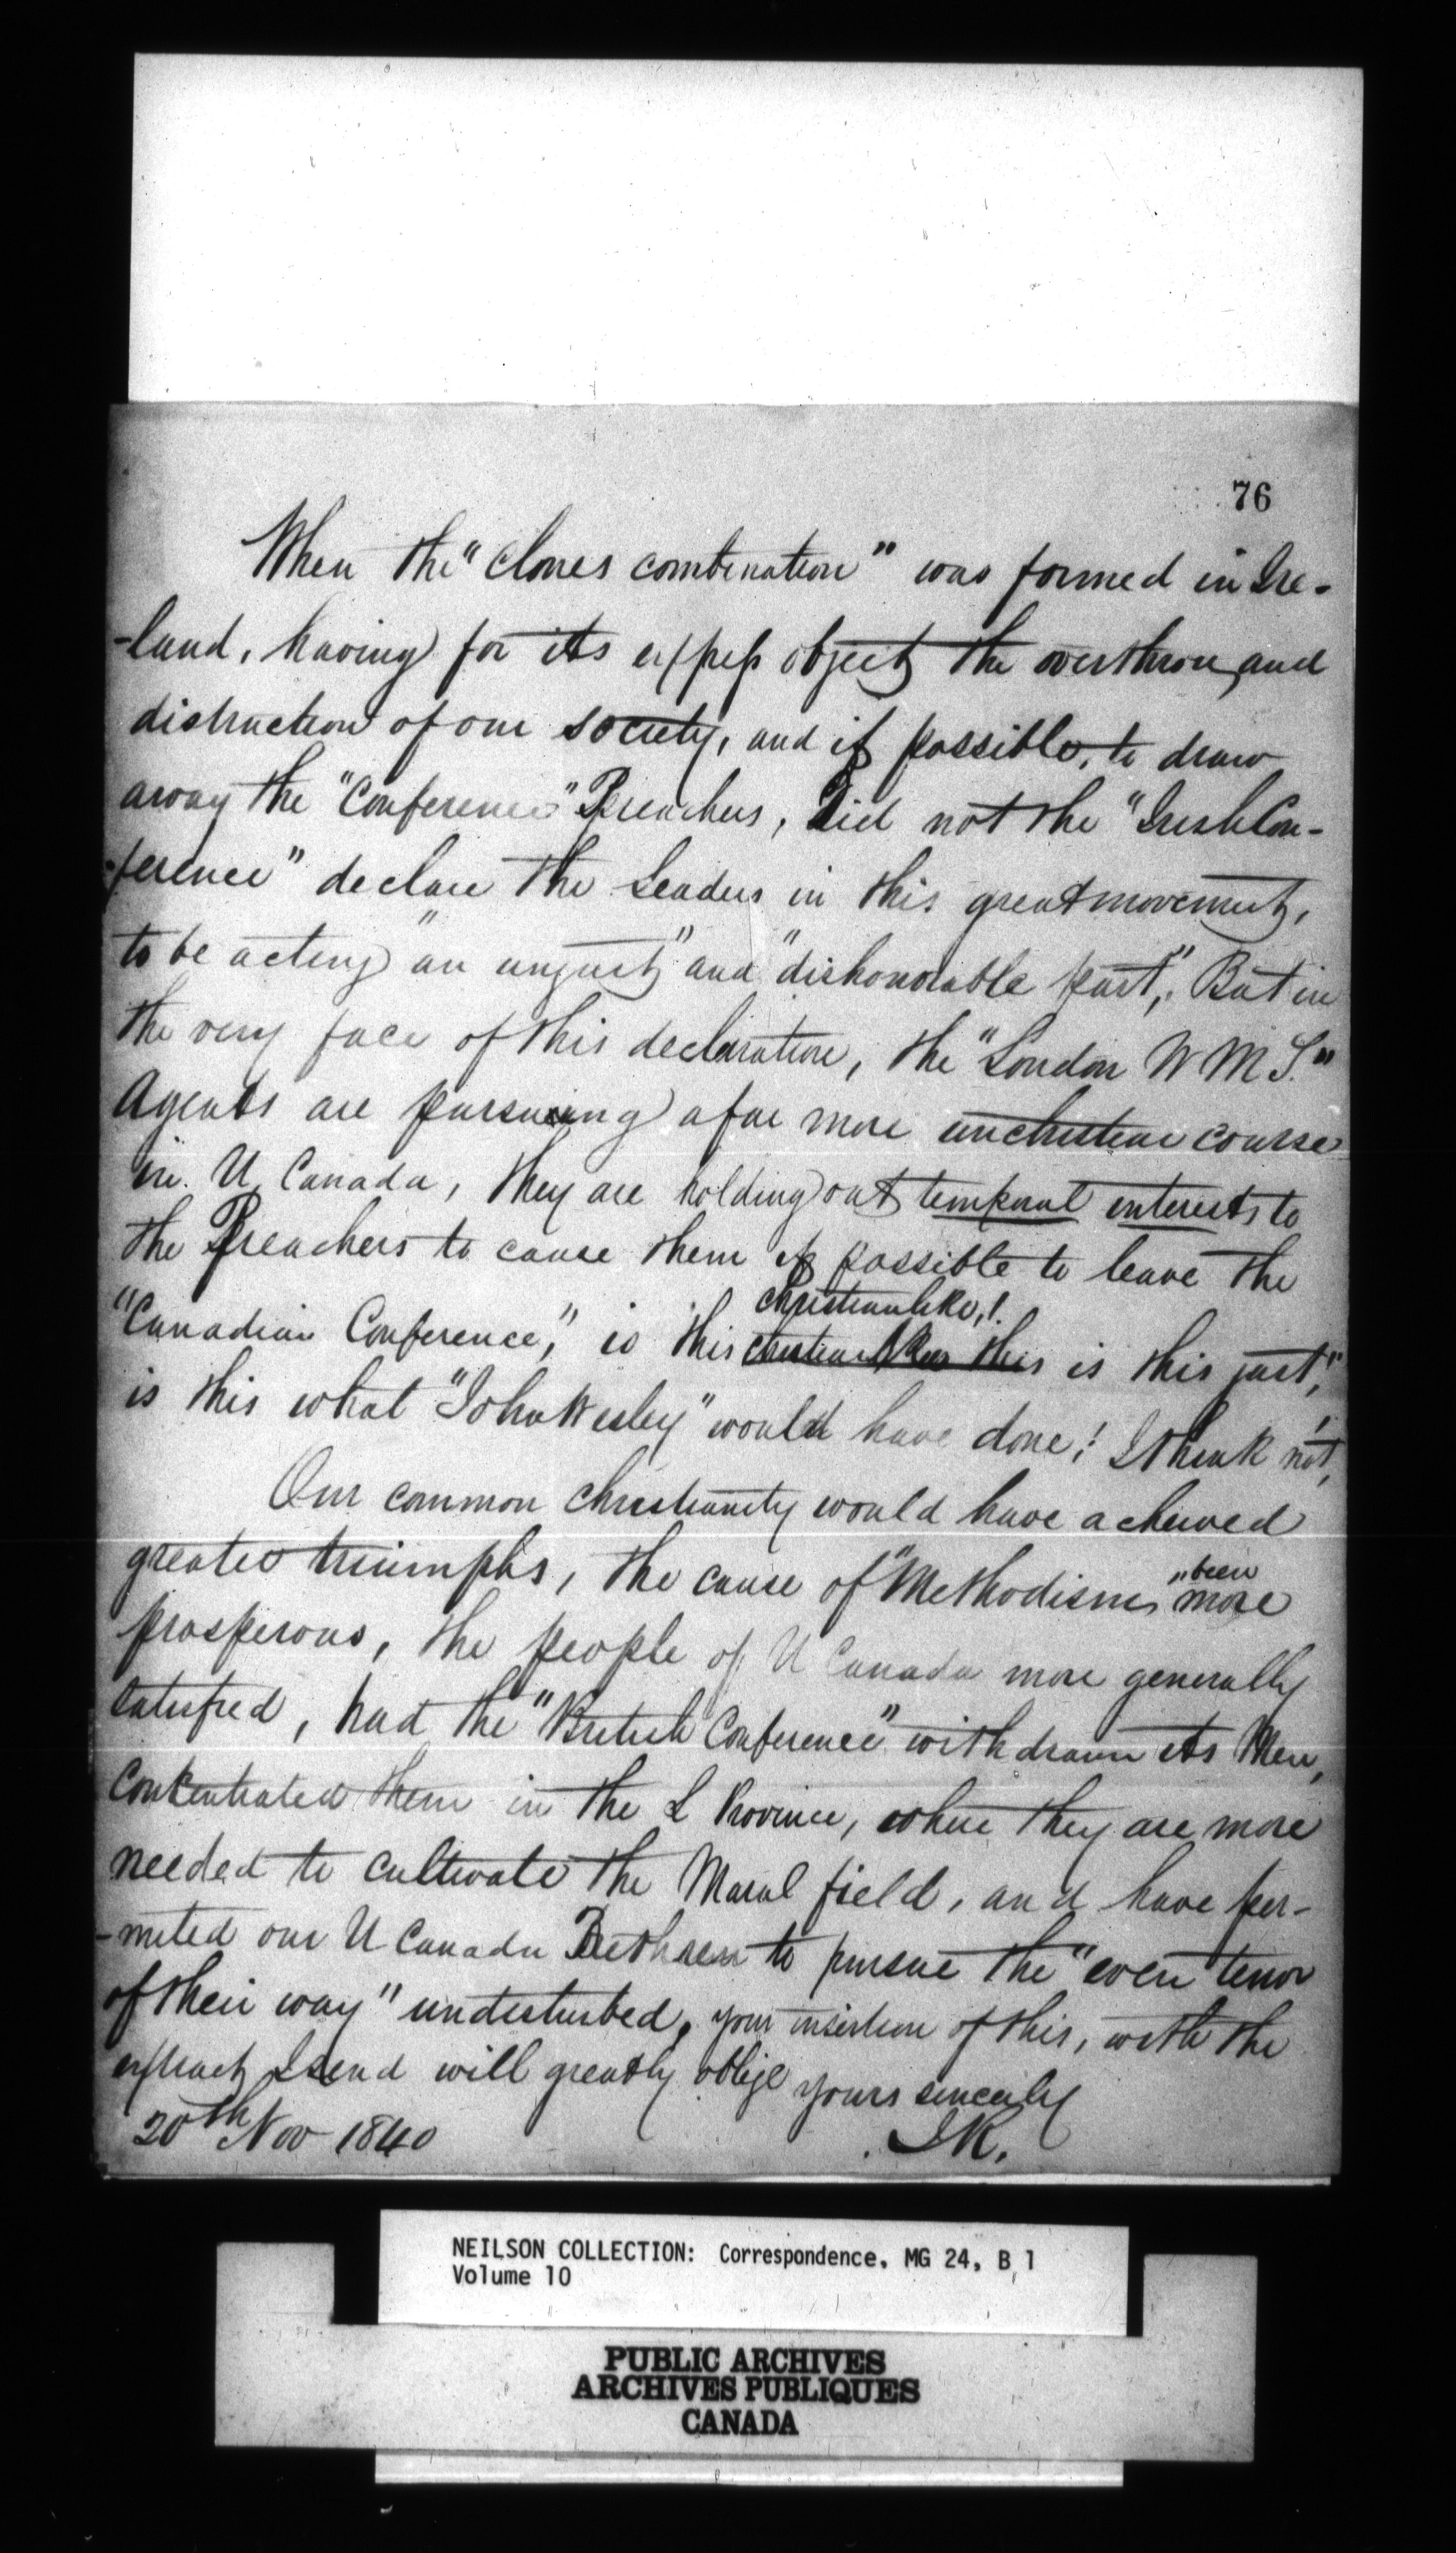 76
When the "clones combination" was formed in Ire-
-land, having for its express object the overthrow and
distruction of our society, and if possible, to draw
away the "Conference" Preachers, Did not the "Irish Con-
-ference" declare the Leaders in this great movement,
to be acting "an unjust" and "dishonorable part," But in
the very face of this declaration, the "London W M S."
Agents are pursuing a far more unchristian course
in U Canada, they are holding out temporal interests to
the Preachers to cause them if possible to leave the
christianlike,!
"Canadian Conference," is this is this just,"
is this what "John Wesley" would have done! I think not!
Our common christianity would have acheived
greater triumphs, the cause of "Methodism" been more
prosperous, the people of U Canada more generally
satisfied, had the "British Conference" withdrawn its Men,
Concentrated them in the L Province, where they are more
needed to cultivate the Moral field, and have per-
-mited our U Canada Brethren to pursue the "even tenor
of their way" undisturbed, your insertion of this, with the
extract I send will greatly oblige yours sincerely
20th Nov 1840 J K.
NEILSON COLLECTION: Correspondence, MG 24, B 1
Volume 10
PUBLIC ARCHIVES
ARCHIVES PUBLIQUES
CANADA